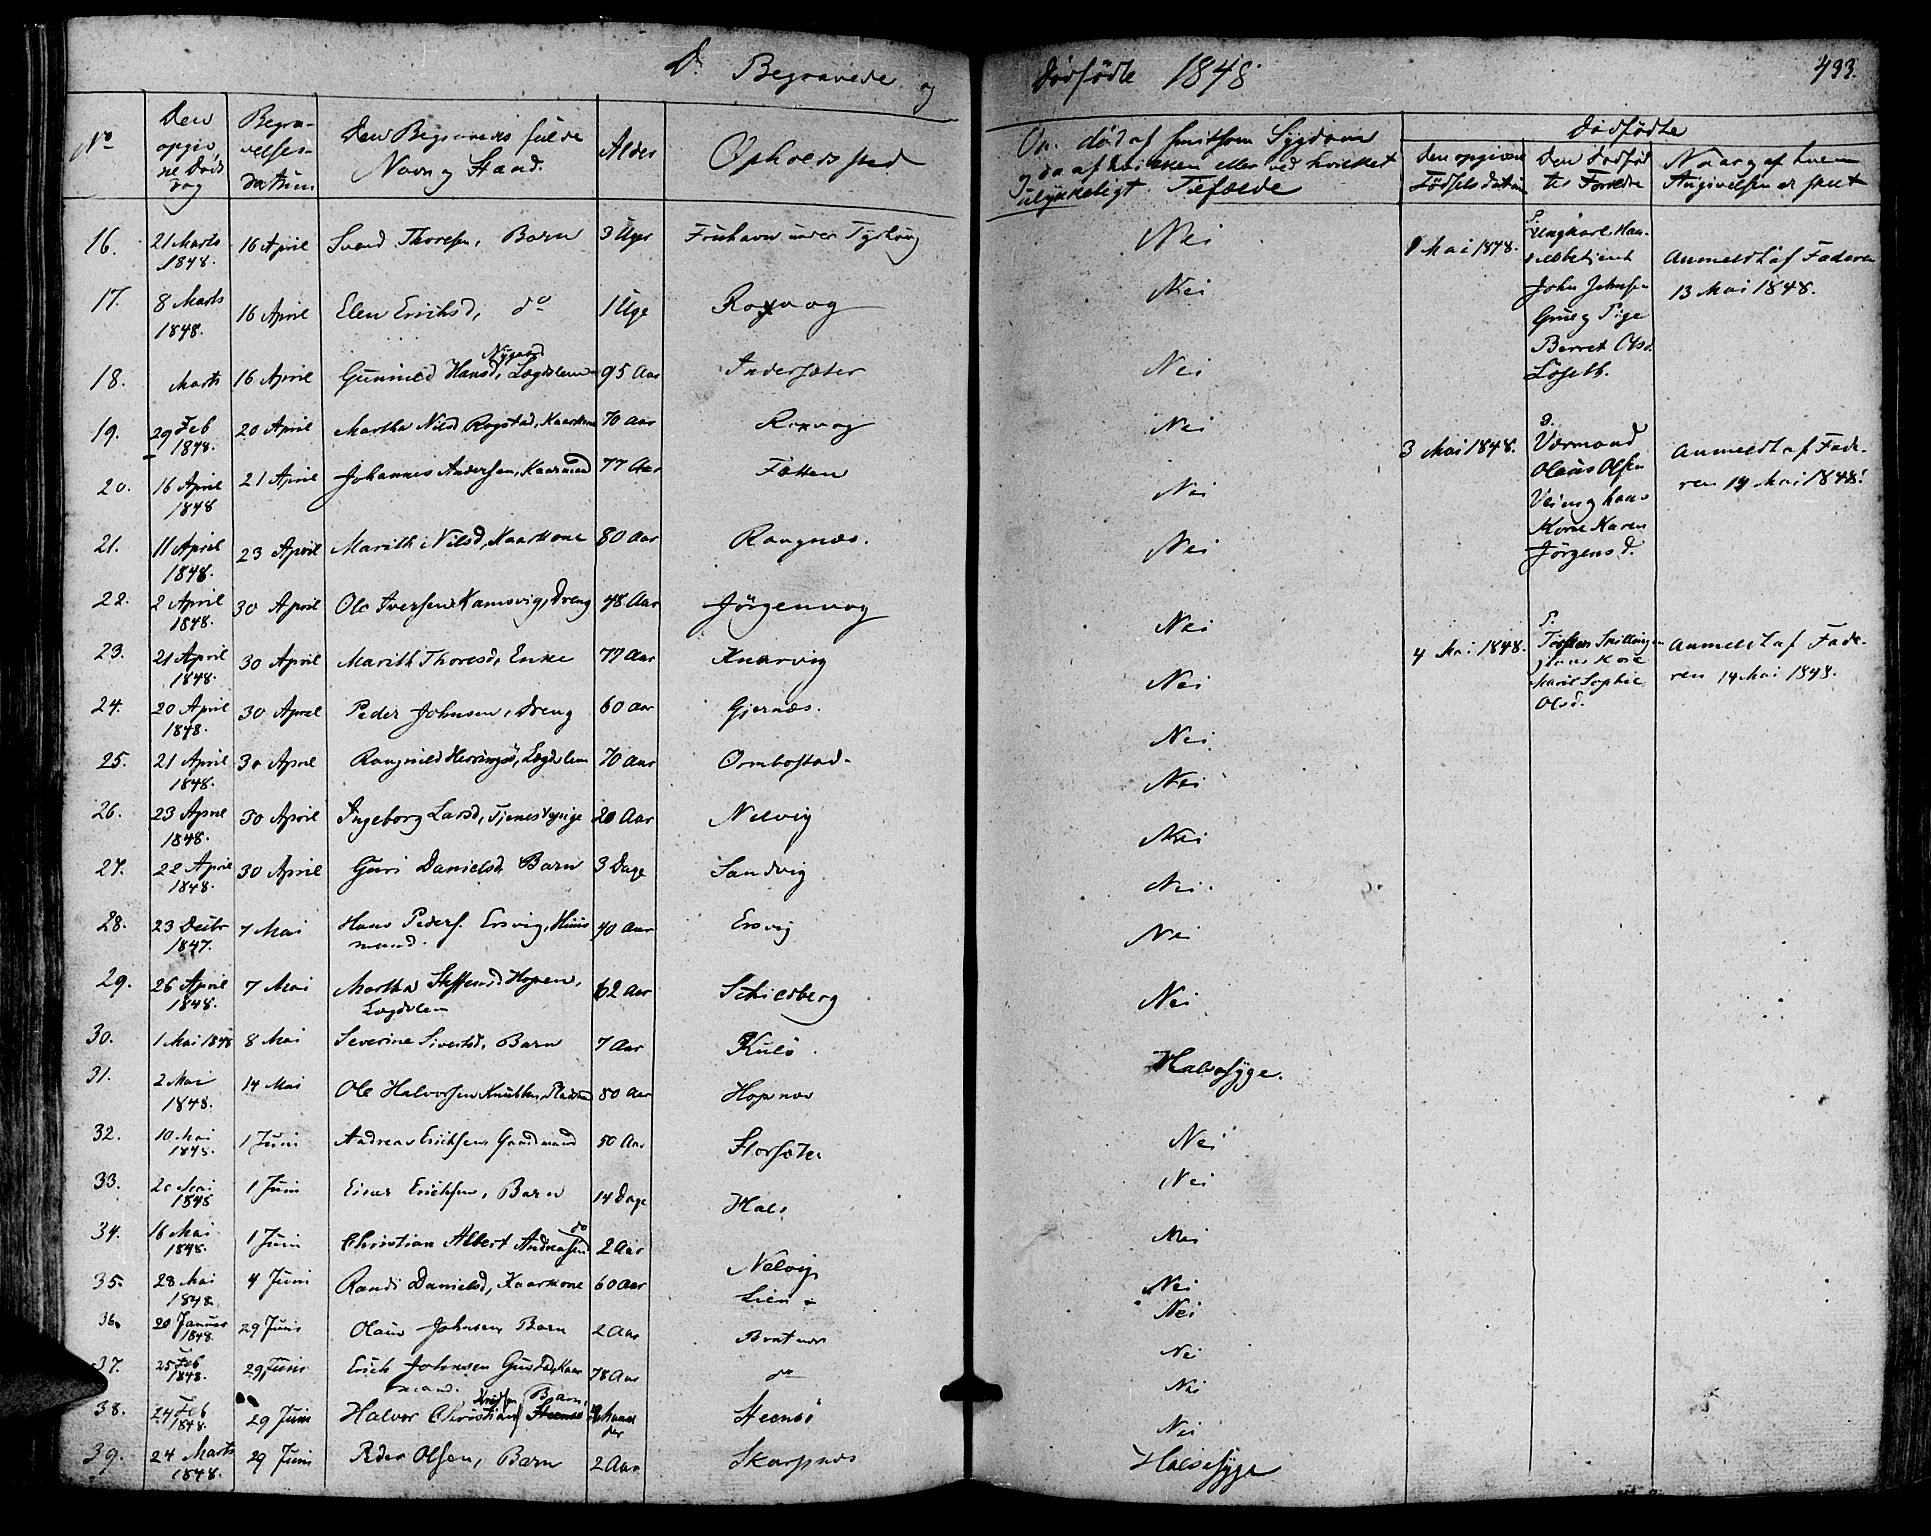 D. Begravede og dødfødte 1848. 433.
No
Den opgivne Døds dag
Begravelses datum
Den Begravedes fulde Navn og Stand.
Alder
Opholdssted
Om død af smitsom Sygdom og da af hvilken eller ved hvilket ulykkeligt Tilfælde
Dødfødte
Den opgivne Fødselsdatum
Den dødfødtes Forældre
Naar og af hvem Angivelsen er skeet
16. 21 Marts 1848. 16 April Svend Thoresen, Barn 3 Uger Nei
17. 8 Marts 1848. 16 April Elen Erichsd, do 1 Uge Roxvog Nei
18. Marts 16 April Gunnild Hansd, Nygaard Lægdslem 95 Aar Indersæter Nei
19. 29 Feb 1848. 20 April Martha Nilsd Rogstad, Kaarkone 70 Aar Roxvog Nei
20. 16 April 1848 21 April Johannes Andersen, Kaarmand 77 Aar Fætten Nei
21. 11 April 1848. 23 April Marith Nilsd, Kaarkone 80 Aar Rangnæs. Nei
22. 2 April 1848. 30 April Ole Iversen Kamsvig, Dreng 48 Aar Jörgenvog Nei
23. 21 April 1848. 30 April Marith Thoresd, Enke 77 Aar Knarvig Nei
24. 20 April 1848. 30 April Peder Johnsen, Dreng 60 Aar Gjernæs. Nei
25. 21 April 1848. 30 April Rangnild Herringsö, Lægdslem 70 Aar Ormbostad. Nei
26. 23 April 1848. 30 April Ingeborg Larsd, Tjenestepige 20 Aar Nelvig Nei
27. 22 April 1848. 30 April Guri Danielsd Barn 3 Dage Sandvig Nei.
28. 23 Decbr 1847. 7 Mai Hans Peders. Ersvig, Huusmand. 40 Aar Ersvig Nei
29. 26 April 1848. 7 Mai Martha Steffensd Hopen, Lægdslem 62 Aar Schildberg Nei
30. 1 Mai 1848 8 Mai Severine Sivertsd, Barn 7 Aar Kulö. Halssyge.
31. 2 Mai 1848. 14 Mai Ole Halvorsen 80 Aar Hopnæs Nei
32. 10 Mai 1848. 1 Juni Andreas Erichsen Gaardmand 50 Aar Storsæter Nei
33. 20 Mai 1848 1 Juni Einer Erichsen, Barn 14 Dage Hals Nei
34. 16 Mai 1848. 1 Juni Christian Albert Andreassen do 2 Aar Nelvig Nei
35. 28 Mai 1848. 4 Juni Randi Danielsd, Kaarkone 60 Aar Lien Nei
36. 20 Januar 1848. 29 Juni Olaus Johnsen Barn 2 Aar Bratnæs Nei
37. 25 Feb 1848. 29 Juni Erich Johnsen Kaarmand. 78 Aar do Nei
38. 24 Feb 1848. 29 Juni Halvor Christian Barn, Maaneder Steensö Nei
39. 24 Marts 1848. 29 Juni Peder Olsen, Barn 2 Aar Skarpnæs Halssyge
1 Mai 1848.
John Johnsen
Grue og Pige
Berret Olsd.
Löseth.
Anmeldt af Faderen
13 Mai 1848.
3 Mai 1848.
Olaus Olsen
Kone Karen
Jörgensd.
Anmeldt af Fade-
ren 14 Mai 1848.
4 Mai 1848.
og hans Kone
Marit Sophie
Olsd.
Anmeldt af Fade-
ren 14 Mai 1848.